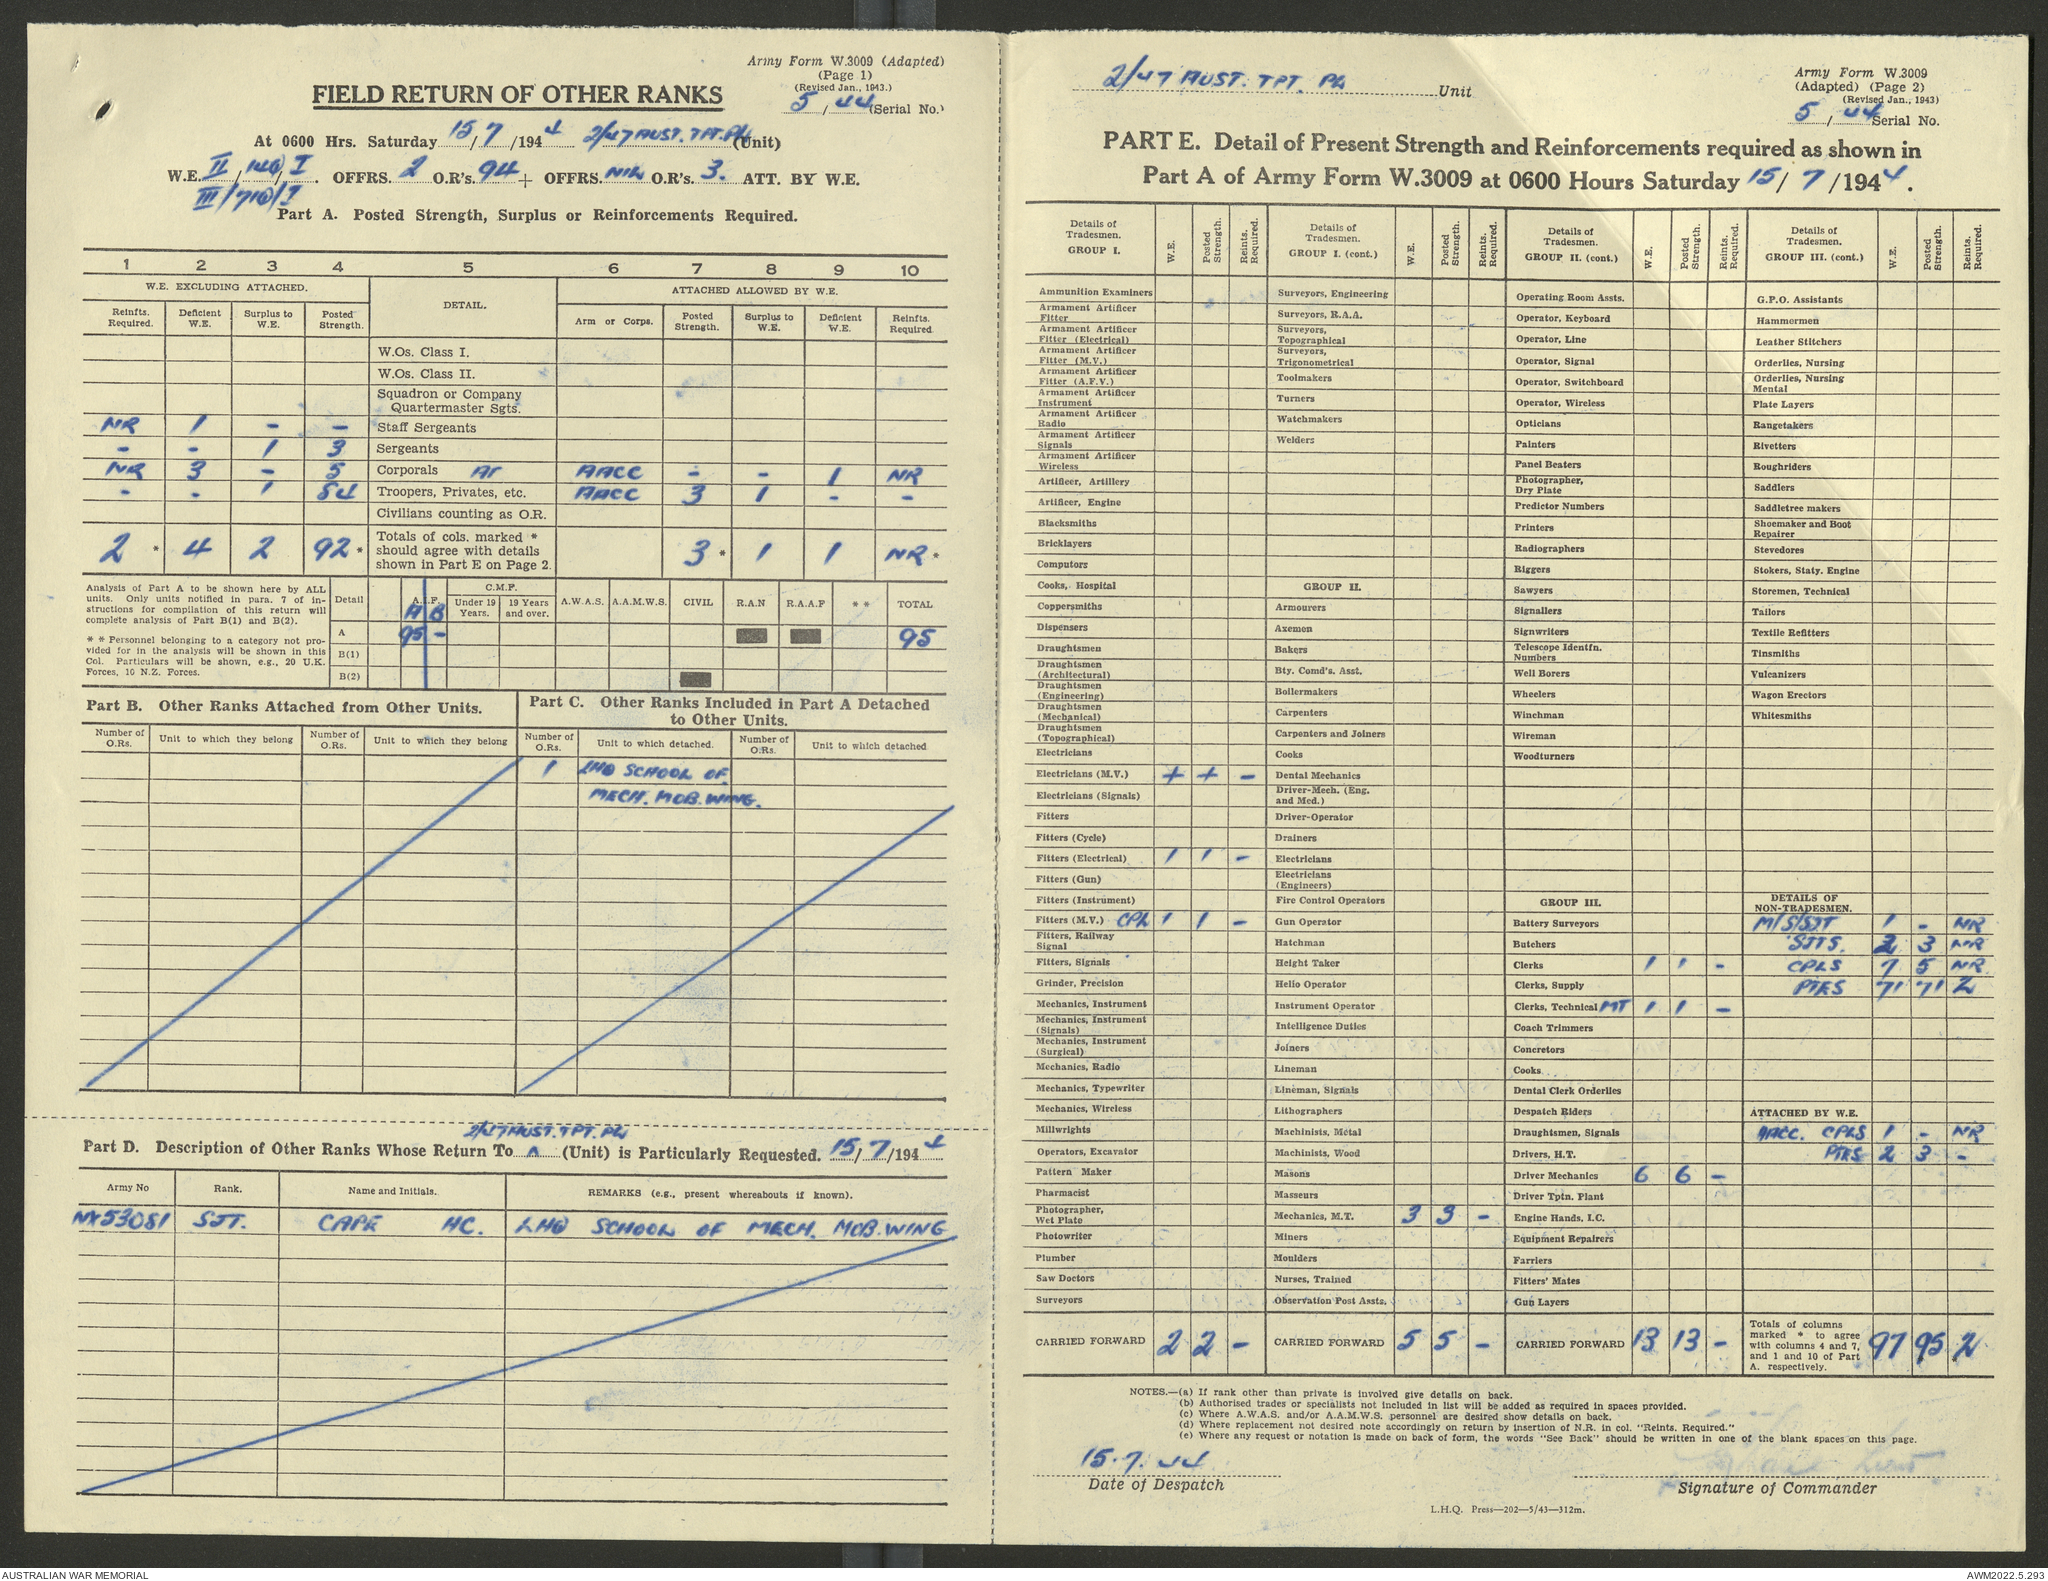 Army Form W.3009 (Adapted)
(Page 1)
(Revised Jan., 1943.)
5 / 44 (Serial No.)
FIELD RETURN OF OTHER RANKS
At 0600 Hrs. Saturday 15/7/1944 2/47 AUST. TPT. PL (Unit)
W.E. II / 14@ / I. OFFRS. 2 O.R's. 94 + OFFRS. NIL O.R's. 3. ATT. BY W.E.
III / 71@ / I
Part A. Posted Strength, Surplus or Reinforcements Required.
1 2 3 4 5 6 7 8 9 10
W.E. EXCLUDING ATTACHED. DETAIL. ATTACHED ALLOWED BY W.E.
Reinfts. Required. Deficient W.E. Surplus to W.E. Posted Strength. Arm or Corps. Posted Strength. Surplus to W.E. Deficient W.E. Reinfts. Required.
W.Os. Class I.
W.Os. Class II.
Squadron or Company Quartermaster Sgts.
NR 1 - - Staff Sergeants
- - 1 3 Sergeants
NR 3 - 5 Corporals AACC - - 1 NR
- - 1 84 Troopers, Privates, etc. AACC 3 1 - -
Civilians counting as O.R.
2 * 4 2 92 * Totals of cols. marked * should agree with details shown in Part E on Page 2. 3 * 1 1 NR *
Analysis of Part A to be shown here by ALL
units. Only units notified in para. 7 of in-
structions for compilation of this return will
complete analysis of Part B(1) and B(2).
* * Personnel belonging to a category not pro-
vided for in the analysis will be shown in this
Col. Particulars will be shown, e.g., 20 U.K.
Forces, 10 N.Z. Forces.
Detail A.I.F. A B C.M.F. Under 19 Years. 19 Years and over. A.W.A.S. A.A.M.W.S. CIVIL R.A.N R.A.A.F * * TOTAL
A 95 - 95
B(1)
B(2)
Part B. Other Ranks Attached from Other Units.
Part C. Other Ranks Included in Part A Detached
to Other Units.
Number of O.Rs. Unit to which they belong Number of O.Rs. Unit to which they belong Number of O.Rs. Unit to which detached. Number of O.Rs. Unit to which detached
1 LHQ SCHOOL OF
MECH. MOB. WING.
2/47 AUST. TPT. PL
Part D. Description of Other Ranks Whose Return To (Unit) is Particularly Requested. 15/7/1944
Army No Rank. Name and Initials. REMARKS (e.g., present whereabouts if known).
NX53081 SJT. CAPE HC. LHQ SCHOOL OF MECH. MOB. WING
2/47 AUST. TPT. PL Unit
Army Form W.3009
(Adapted) (Page 2)
(Revised Jan., 1943)
5 / 44 Serial No.
PART E. Detail of Present Strength and Reinforcements required as shown in
Part A of Army Form W.3009 at 0600 Hours Saturday 15/7/1944.
Details of Tradesmen. GROUP I. W.E. Posted Strength. Reints. Required.
Ammunition Examiners
Armament Artificer Fitter
Armament Artificer Fitter (Electrical)
Armament Artificer Fitter (M.V.)
Armament Artificer Fitter (A.F.V.)
Armament Artificer Instrument
Armament Artificer Radio
Armament Artificer Signals
Armament Artificer Wireless
Artificer, Artillery
Artificer, Engine
Blacksmiths
Bricklayers
Computors
Cooks, Hospital
Coppersmiths
Dispensers
Draughtsmen
Draughtsmen (Architectural)
Draughtsmen (Engineering)
Draughtsmen (Mechanical)
Draughtsmen (Topographical)
Electricians
Electricians (M.V.) + + -
Electricians (Signals)
Fitters
Fitters (Cycle)
Fitters (Electrical) 1 1 -
Fitters (Gun)
Fitters (Instrument)
Fitters (M.V.) CPL 1 1 -
Fitters, Railway Signal
Fitters, Signals
Grinder, Precision
Mechanics, Instrument
Mechanics, Instrument (Signals)
Mechanics, Instrument (Surgical)
Mechanics, Radio
Mechanics, Typewriter
Mechanics, Wireless
Millwrights
Operators, Excavator
Pattern Maker
Pharmacist
Photographer, Wet Plate
Photowriter
Plumber
Saw Doctors
Surveyors
CARRIED FORWARD 2 2 -
Details of Tradesmen. GROUP I. (cont.) W.E. Posted Strength. Reints. Required.
Surveyors, Engineering
Surveyors, R.A.A.
Surveyors, Topographical
Surveyors, Trigonometrical
Toolmakers
Turners
Watchmakers
Welders
GROUP II.
Armourers
Axemen
Bakers
Bty. Comd's. Asst.
Boilermakers
Carpenters
Carpenters and Joiners
Cooks
Dental Mechanics
Driver-Mech. (Eng. and Med.)
Driver-Operator
Drainers
Electricians
Electricians (Engineers)
Fire Control Operators
Gun Operator
Hatchman
Height Taker
Helio Operator
Instrument Operator
Intelligence Duties
Joiners
Lineman
Lineman, Signals
Lithographers
Machinists, Metal
Machinists, Wood
Masons
Masseurs
Mechanics, M.T. 3 3 -
Miners
Moulders
Nurses, Trained
Observation Post Assts.
CARRIED FORWARD 5 5 -
Details of Tradesmen. GROUP II. (cont.) W.E. Posted Strength. Reints. Required.
Operating Room Assts.
Operator, Keyboard
Operator, Line
Operator, Signal
Operator, Switchboard
Operator, Wireless
Opticians
Painters
Panel Beaters
Photographer, Dry Plate
Predictor Numbers
Printers
Radiographers
Riggers
Sawyers
Signallers
Signwriters
Telescope Identfn. Numbers
Well Borers
Wheelers
Winchman
Wireman
Woodturners
GROUP III.
Battery Surveyors
Butchers
Clerks 1 1 -
Clerks, Supply
Clerks, Technical MT 1 1 -
Coach Trimmers
Concretors
Cooks
Dental Clerk Orderlies
Despatch Riders
Draughtsmen, Signals
Drivers, H.T.
Driver Mechanics 6 6 -
Driver Tptn. Plant
Engine Hands, I.C.
Equipment Repairers
Farriers
Fitters' Mates
Gun Layers
CARRIED FORWARD 13 13 -
Details of Tradesmen. GROUP III. (cont.) W.E. Posted Strength. Reints. Required.
G.P.O. Assistants
Hammermen
Leather Stitchers
Orderlies, Nursing
Orderlies, Nursing Mental
Plate Layers
Rangetakers
Rivetters
Roughriders
Saddlers
Saddletree makers
Shoemaker and Boot Repairer
Stevedores
Stokers, Staty. Engine
Storemen, Technical
Tailors
Textile Refitters
Tinsmiths
Vulcanizers
Wagon Erectors
Whitesmiths
DETAILS OF NON-TRADESMEN.
M/S/SJT 1 - NR
SJTS. 2 3 NR
CPLS 7 5 NR
PTES 71 71 2
ATTACHED BY W.E.
AACC. CPLS 1 - NR
PTES 2 3 -
Totals of columns marked * to agree with columns 4 and 7, and 1 and 10 of Part A. respectively. 97 95 2
NOTES.—(a) If rank other than private is involved give details on back.
(b) Authorised trades or specialists not included in list will be added as required in spaces provided.
(c) Where A.W.A.S. and/or A.A.M.W.S. personnel are desired show details on back.
(d) Where replacement not desired note accordingly on return by insertion of N.R. in col. "Reints. Required."
(e) Where any request or notation is made on back of form, the words "See Back" should be written in one of the blank spaces on this page.
15.7.44
Date of Despatch
Signature of Commander
L.H.Q. Press—202—5/43—312m.
AUSTRALIAN WAR MEMORIAL
AWM2022.5.293